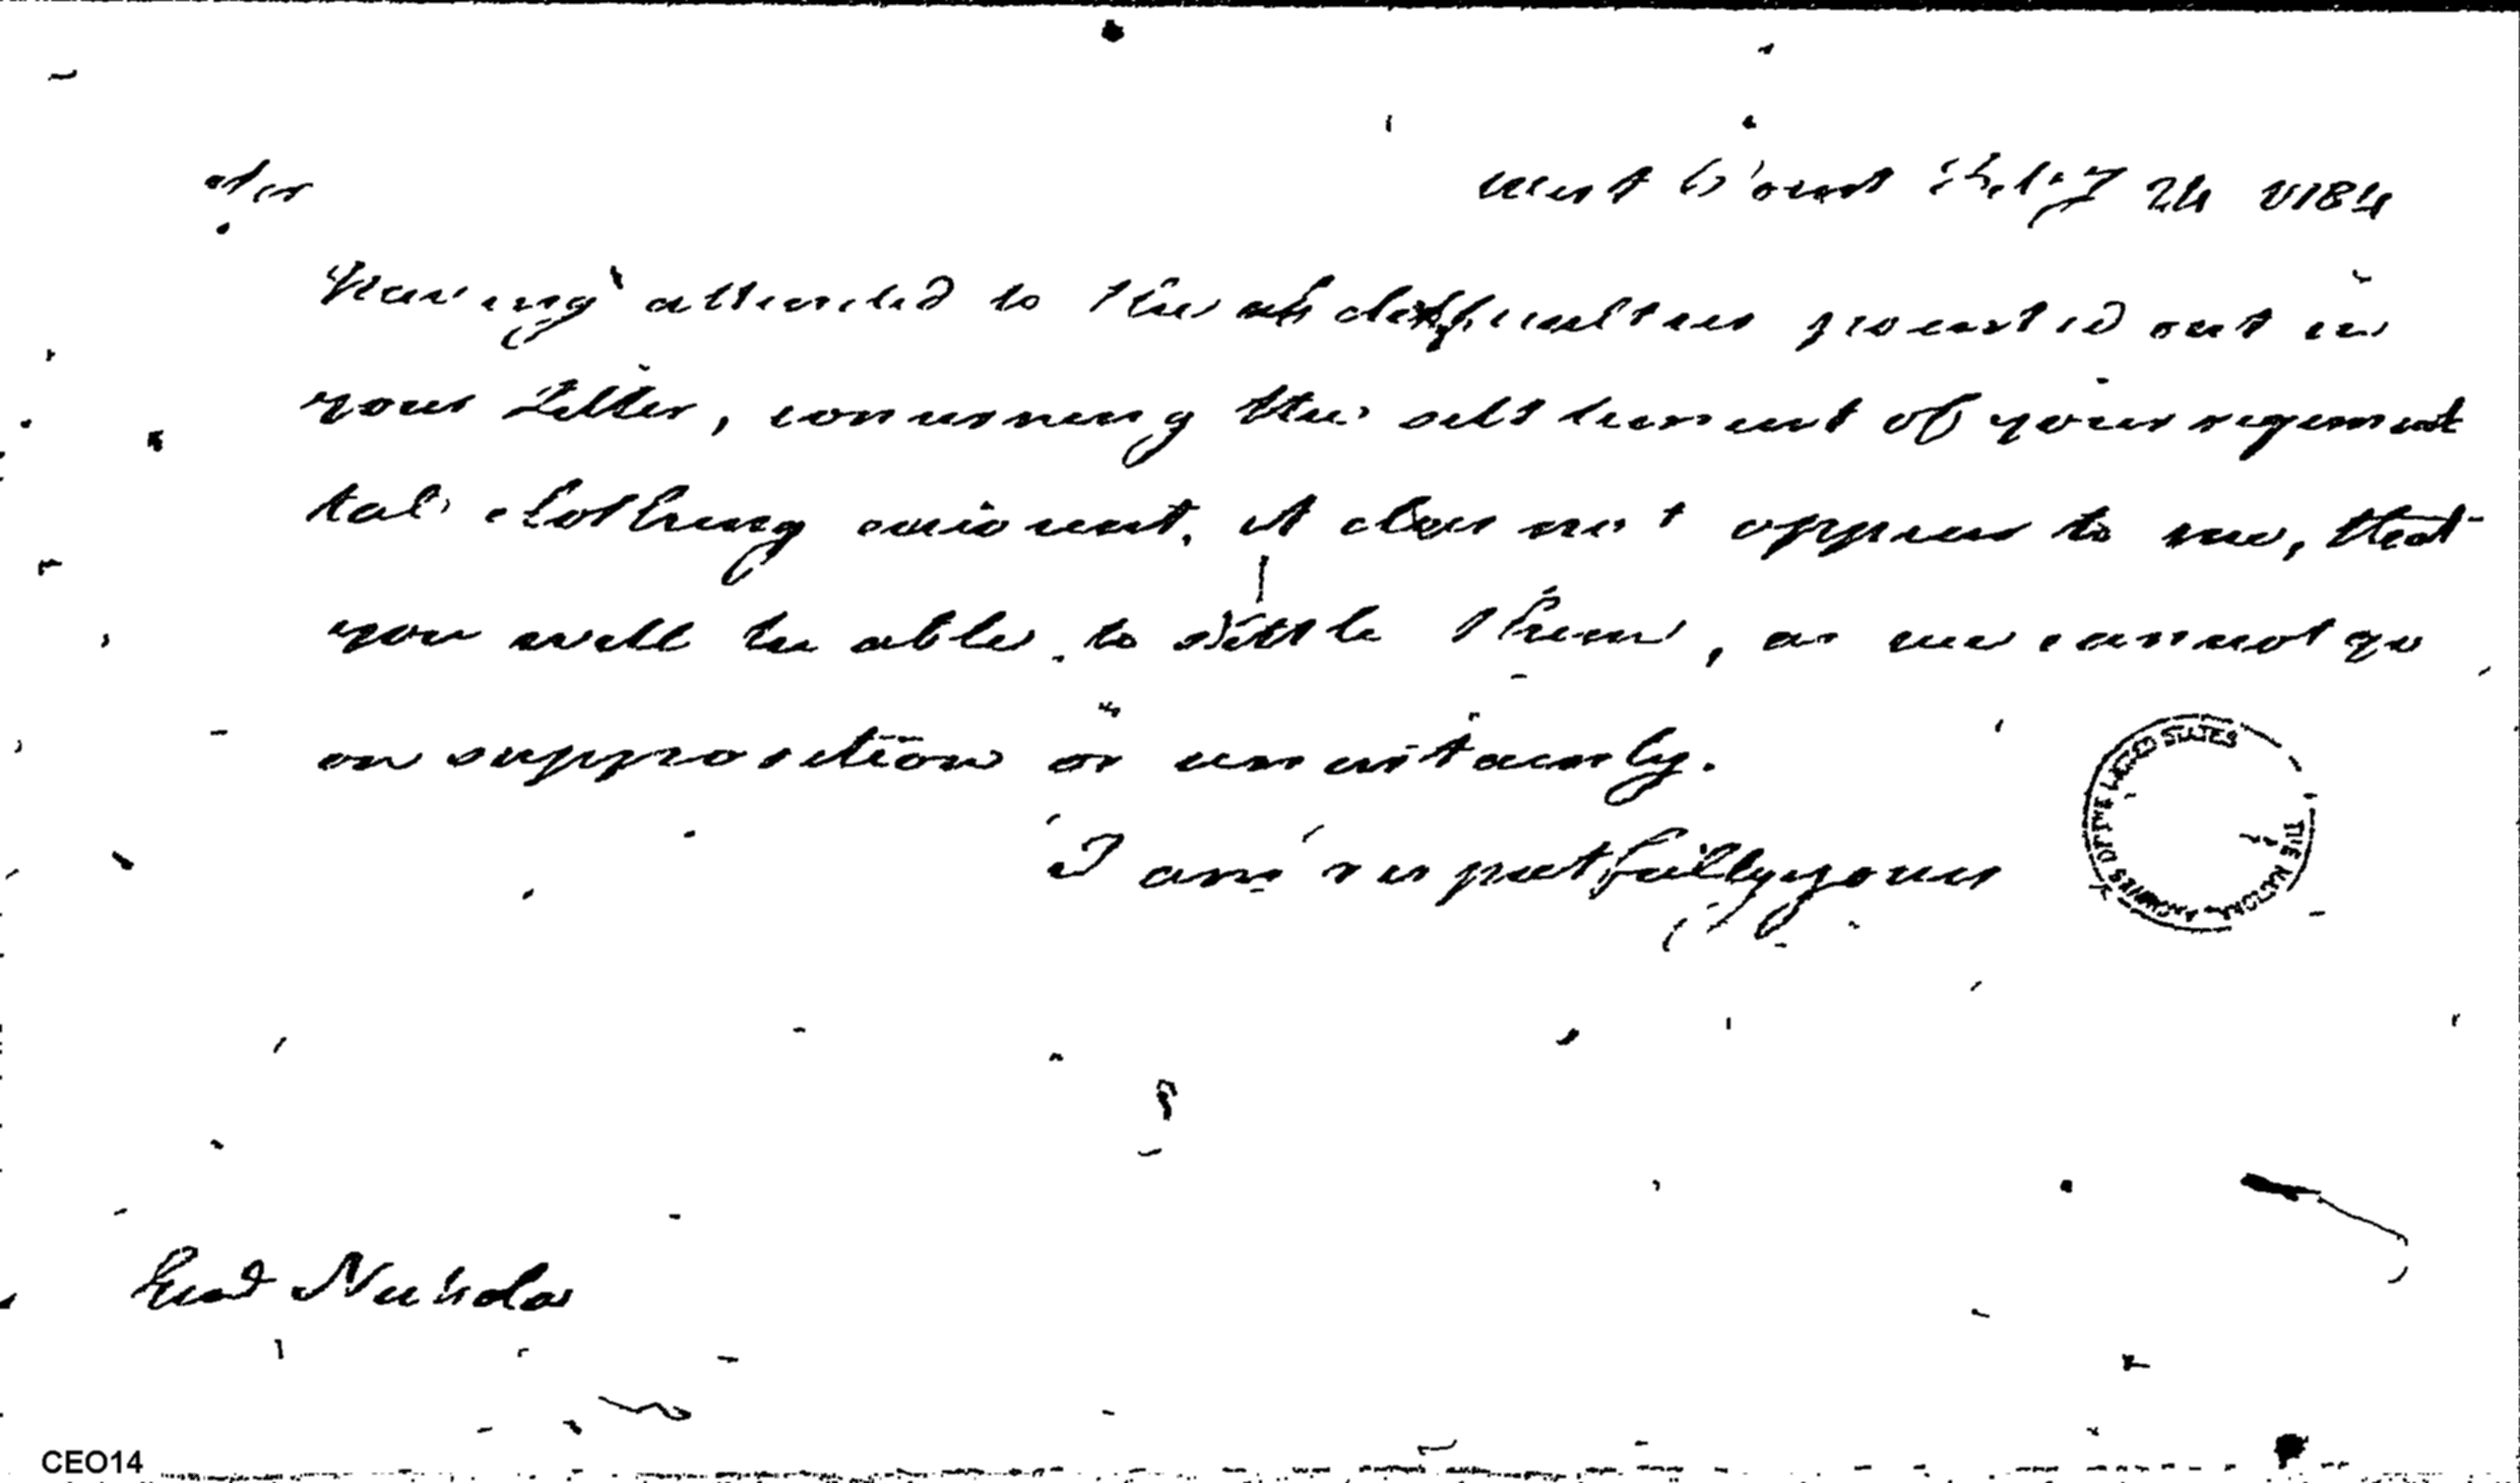 Sir
West Point Feby 24 1784
Having attended to the difficulties pointed out in
your Letter, concerning the settlement of your regimen
tal clothing account, it does not appear to me, that
you will be able to settle them, as we cannot go
on supposition or uncertainty.
I am respectfully yours
THE NATIONAL ARCHIVES OF THE UNITED STATES
Nicholas
CEO14